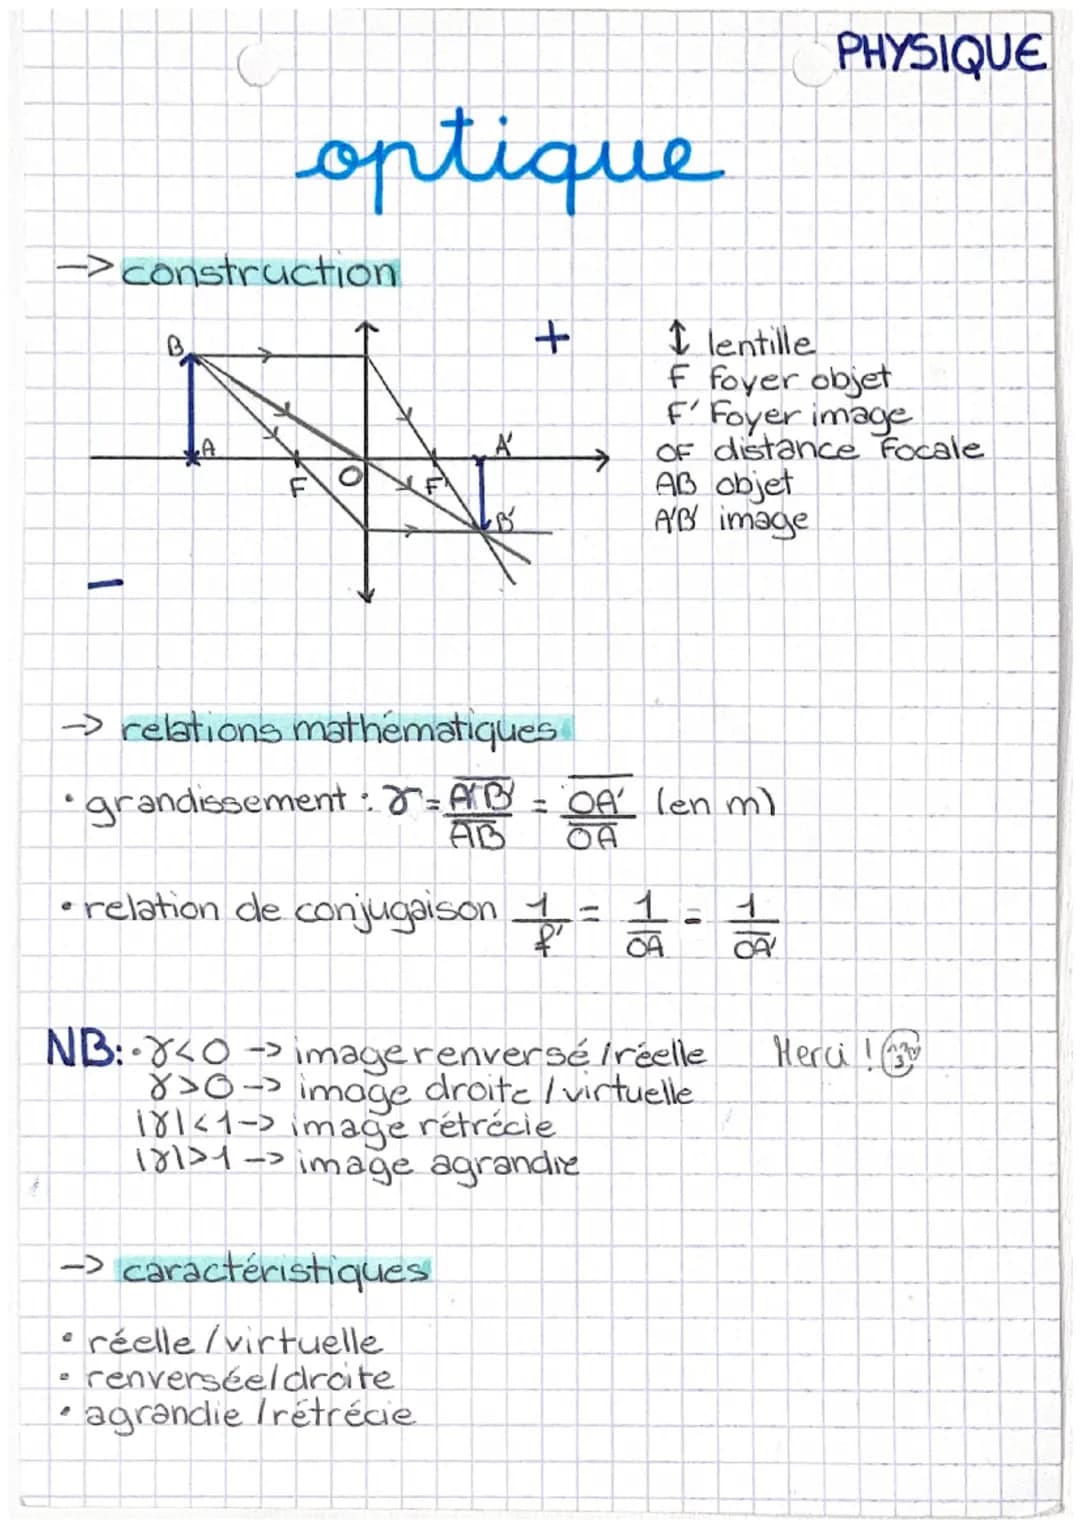 PHYSIQUE
optique
-> construction
B
A
F
O
F'
A'
B'
+
-
↕ lentille
F foyer objet
F' Foyer image
OF distance Focale
AB objet
A'B' image
-> relations mathématiques
• grandissement : γ = A'B'/AB = OA'/OA (en m)
• relation de conjugaison 1/f' = 1/OA - 1/OA'
NB: • γ<0 -> image renversé / réelle Merci !
γ>0 -> image droite / virtuelle
|γ|<1 -> image rétrécie
|γ|>1 -> image agrandie
-> caractéristiques
• réelle / virtuelle
• renversée / droite
• agrandie / rétrécie